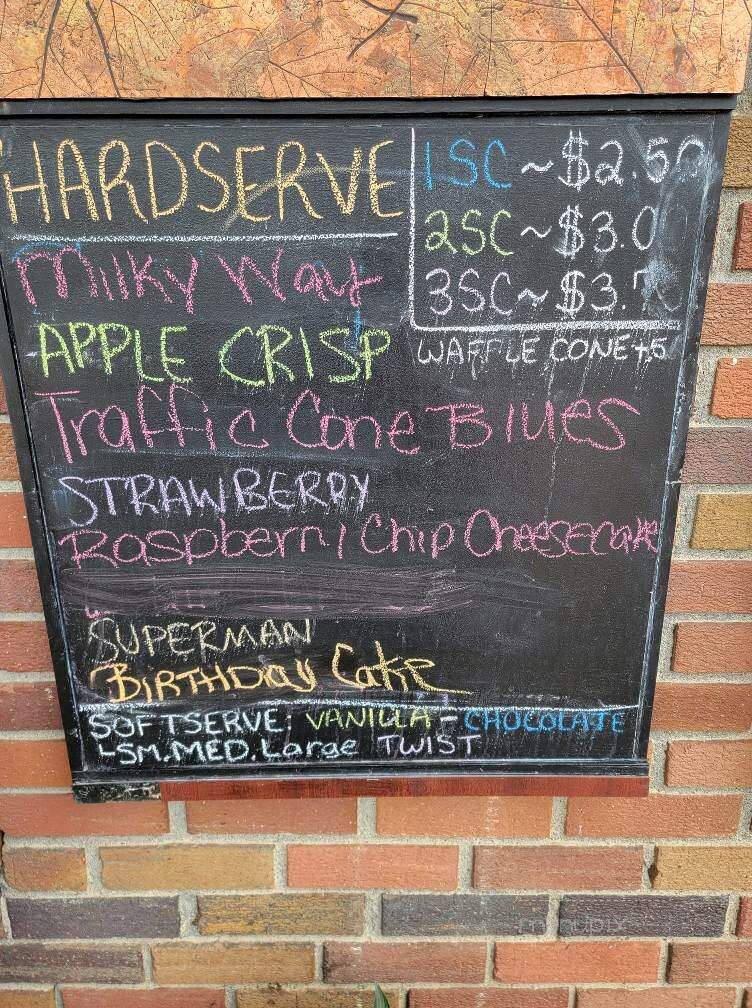 HARDSERVE
1SC ~ $2.50
2SC ~ $3.0
3SC ~ $3.
WAFFLE CONE +5
Milky Way
APPLE CRISP
Traffic Cone Blues
STRAWBERRY
Raspberry Chip Cheesecake
SUPERMAN
BIRTHDAY Cake
SOFTSERVE: VANILLA - CHOCOLATE
SM. MED. Large TWIST
menupix